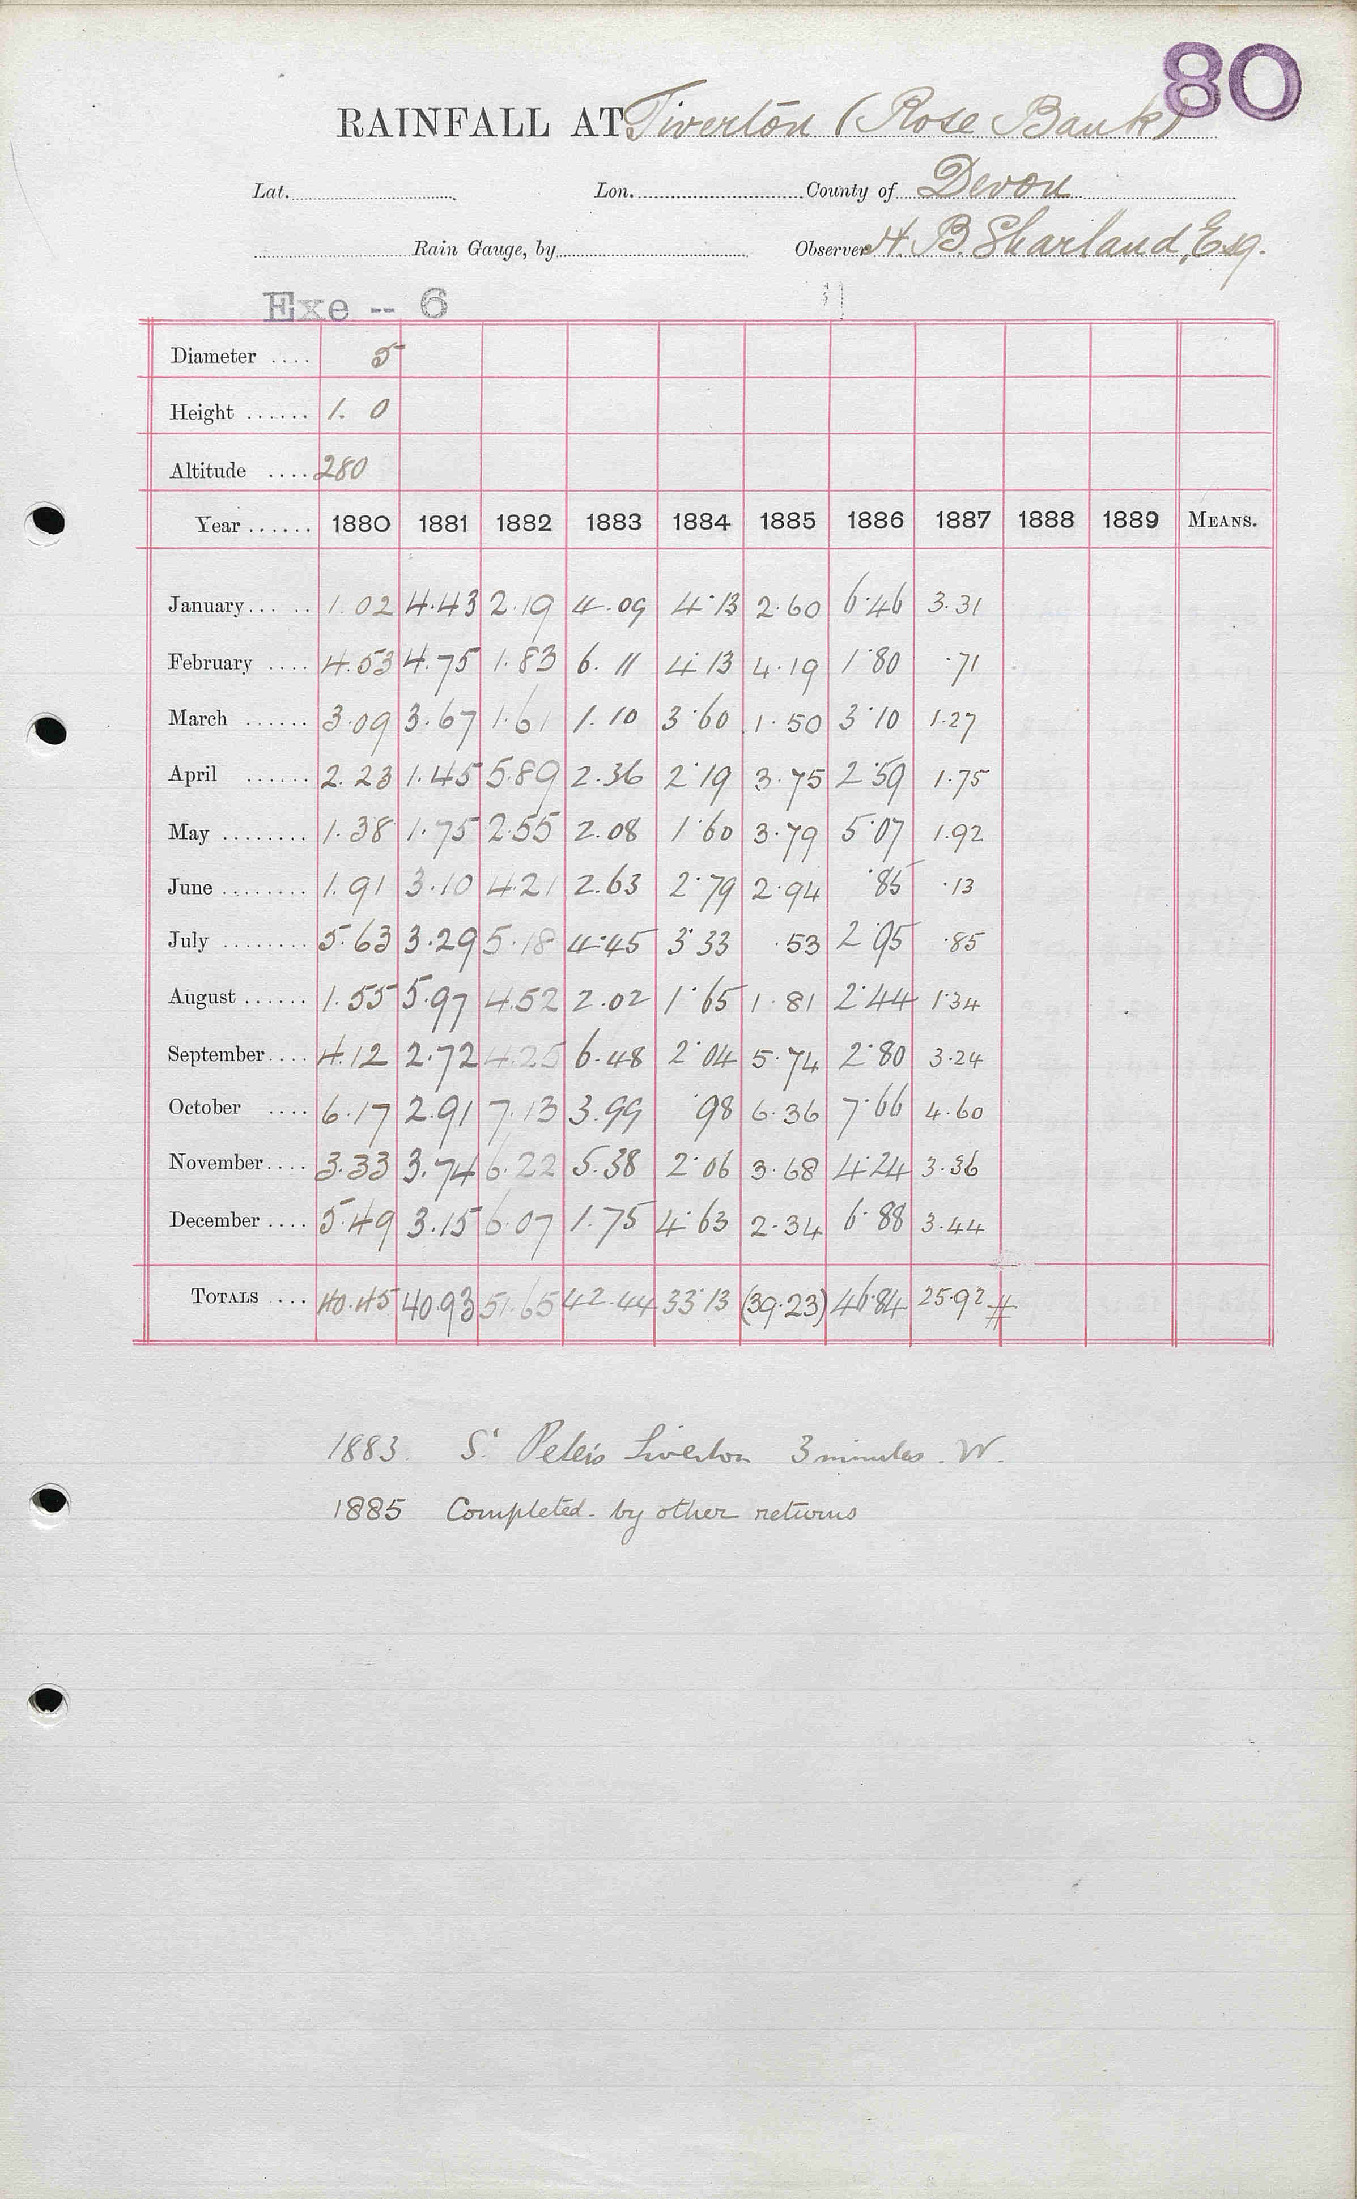 80
RAINFALL AT Tiverton (Rose Bank)
Lat. Lon. County of Devon
Rain Gauge, by Observer H. B. Sharland, Esq.
Exe -- 6
Diameter .... 5
Height ...... 1. 0
Altitude .... 280
Year ...... 1880 1881 1882 1883 1884 1885 1886 1887 1888 1889 MEANS.
January ... .. 1.02 4.43 2.19 4.09 4.13 2.60 6.46 3.31
February .... 4.53 4.75 1.83 6.11 4.13 4.19 1.80 .71
March ...... 3.09 3.67 1.61 1.10 3.60 1.50 3.10 1.27
April ...... 2.23 1.45 5.89 2.36 2.19 3.75 2.59 1.75
May ........ 1.38 1.75 2.55 2.08 1.60 3.79 5.07 1.92
June ........ 1.91 3.10 4.21 2.63 2.79 2.94 .85 .13
July ........ 5.63 3.29 5.18 4.45 3.33 .53 2.95 .85
August ...... 1.55 5.97 4.52 2.02 1.65 1.81 2.44 1.34
September .... 4.12 2.72 4.25 6.48 2.04 5.74 2.80 3.24
October .... 6.17 2.91 7.13 3.99 .98 6.36 7.66 4.60
November .... 3.33 3.74 6.22 5.38 2.06 3.68 4.24 3.36
December .... 5.49 3.15 6.07 1.75 4.63 2.34 6.88 3.44
TOTALS ... 40.45 40.93 51.65 42.44 33.13 (39.23) 46.84 25.92 #
1883. St Peter's Tiverton 3 minutes W.
1885 Completed by other returns